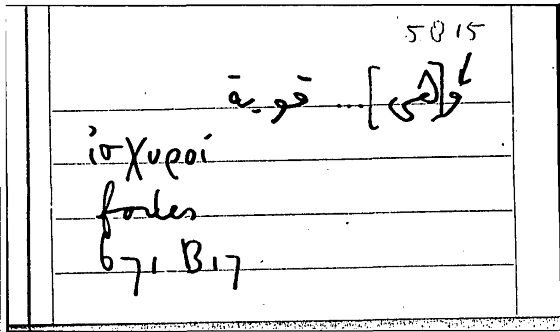 5015
و[هى] .... قوية
ἰσχυροί
fortes
671 B17